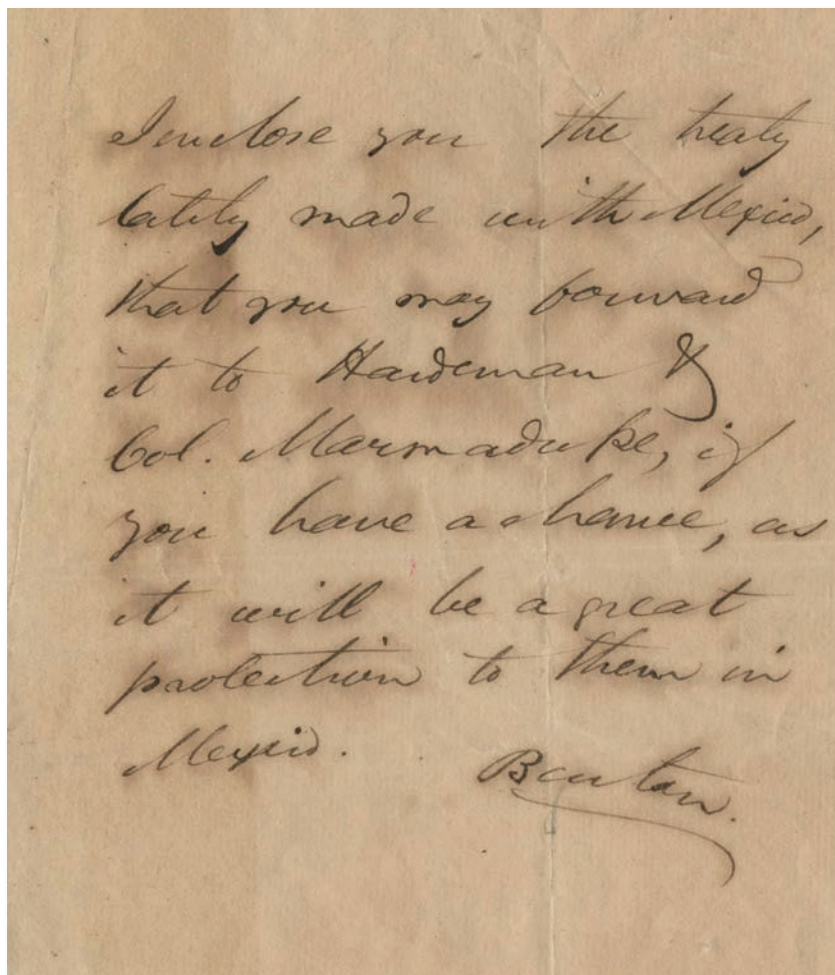 I enclose you the treaty
lately made with Mexico,
that you may forward
it to Hardeman &
Col. Marmaduke, if
you have a chance, as
it will be a great
protection to them in
Mexico.
Benton.